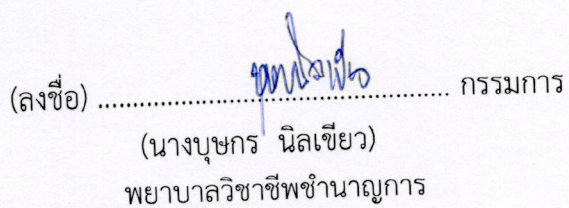 (ลงชื่อ) ................................................ กรรมการ
(นางบุษกร นิลเขียว)
พยาบาลวิชาชีพชำนาญการ